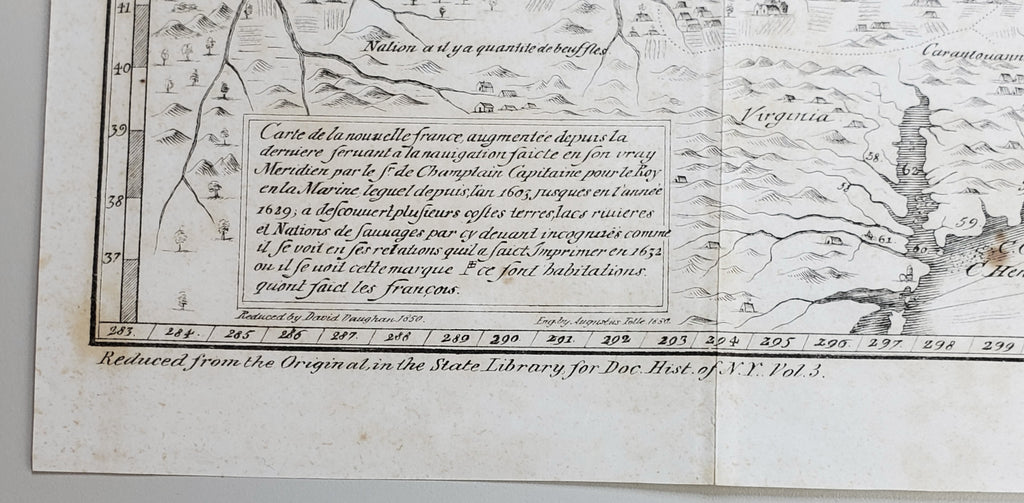 41
Nation a il y a quantite de beuffles
Carantouann
40
Virginia
39
58
62
38
51
59
61
60
37
C. Hen
Carte de la nouuelle france, augmentée depuis la
derniere servant a la nauigation faicte en son vray
Meridien par le Sr. de Champlain Capitaine pour le Roy
en la Marine lequel depuis l'an 1603 jusques en l'année
1629; a descouuert plusieurs costes terres, lacs riuieres
et Nations de sauuages par cy deuant incognuës comme
il se voit en ses relations quil a faict Imprimer en 1632
ou il se uoit cette marque ce sont habitations
quont faict les françois.
Reduced by David Vaughan. 1850.
Eng. by Augustus Tolle 1850.
283 284. 285 286 287. 288 289 290 291. 292 293 294 295 296. 297. 298 299
Reduced from the Original, in the State Library, for Doc. Hist. of N.Y. Vol. 3.